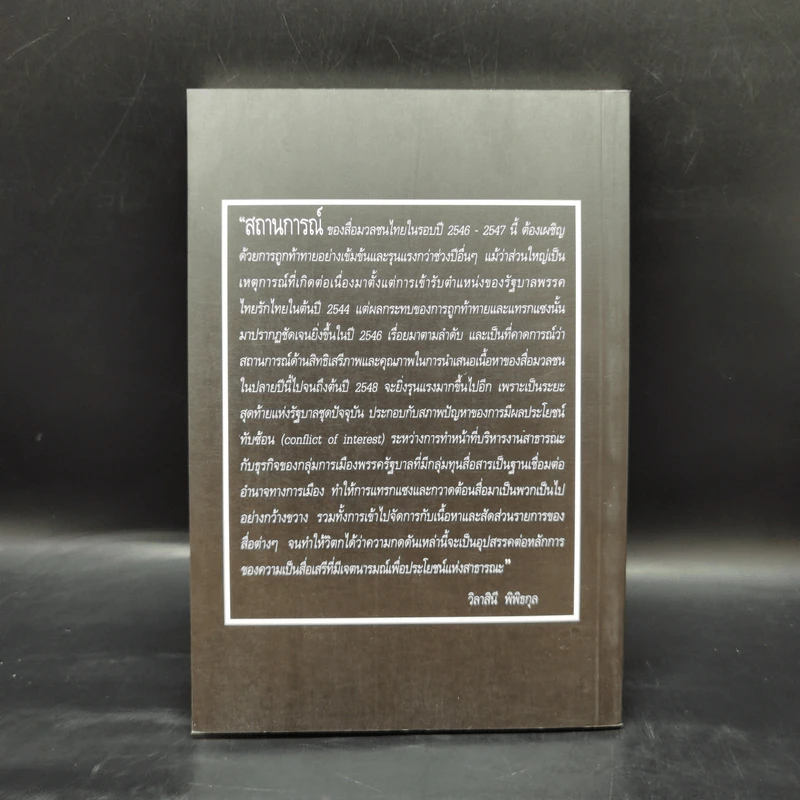 “สถานการณ์ ของสื่อมวลชนไทยในรอบปี 2546 - 2547 นี้ ต้องเผชิญ
ด้วยการถูกท้าทายอย่างเข้มข้นและรุนแรงกว่าช่วงปีอื่นๆ แม้ว่าส่วนใหญ่เป็น
เหตุการณ์ที่เกิดต่อเนื่องมาตั้งแต่การเข้ารับตำแหน่งของรัฐบาลพรรค
ไทยรักไทยในต้นปี 2544 แต่ผลกระทบของการถูกท้าทายและแทรกแซงนั้น
มาปรากฏชัดเจนยิ่งขึ้นในปี 2546 เรื่อยมาตามลำดับ และเป็นที่คาดการณ์ว่า
สถานการณ์ด้านสิทธิเสรีภาพและคุณภาพในการนำเสนอเนื้อหาของสื่อมวลชน
ในปลายปีนี้ไปจนถึงต้นปี 2548 จะยิ่งรุนแรงมากขึ้นไปอีก เพราะเป็นระยะ
สุดท้ายแห่งรัฐบาลชุดปัจจุบัน ประกอบกับสภาพปัญหาของการมีผลประโยชน์
ทับซ้อน (conflict of interest) ระหว่างการทำหน้าที่บริหารงานสาธารณะ
กับธุรกิจของกลุ่มการเมืองพรรครัฐบาลที่มีกลุ่มทุนสื่อสารเป็นฐานเชื่อมต่อ
อำนาจทางการเมือง ทำให้การแทรกแซงและกวาดต้อนสื่อมาเป็นพวกเป็นไป
อย่างกว้างขวาง รวมทั้งการเข้าไปจัดการกับเนื้อหาและสัดส่วนรายการของ
สื่อต่างๆ จนทำให้วิตกได้ว่าความกดดันเหล่านี้จะเป็นอุปสรรคต่อหลักการ
ของความเป็นสื่อเสรีที่มีเจตนารมณ์เพื่อประโยชน์แห่งสาธารณะ”
วิลาสินี พิพิธกุล